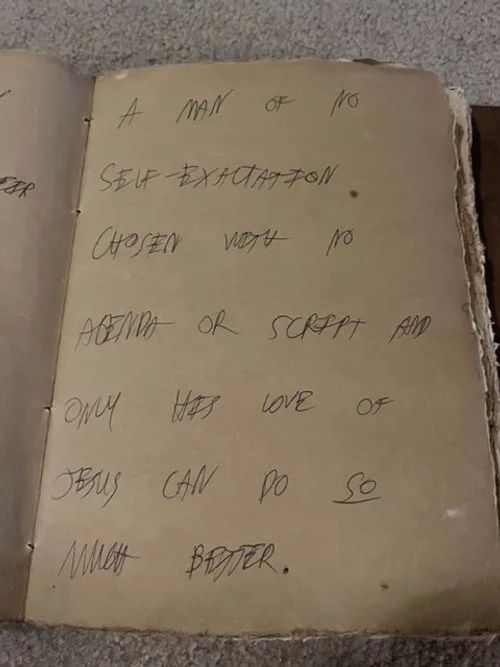 A MAN OF NO
SELF-EXALTATION
CHOSEN WITH NO
AGENDA OR SCRIPT AND
ONLY HIS LOVE OF
JESUS CAN DO SO
MUCH BETTER.